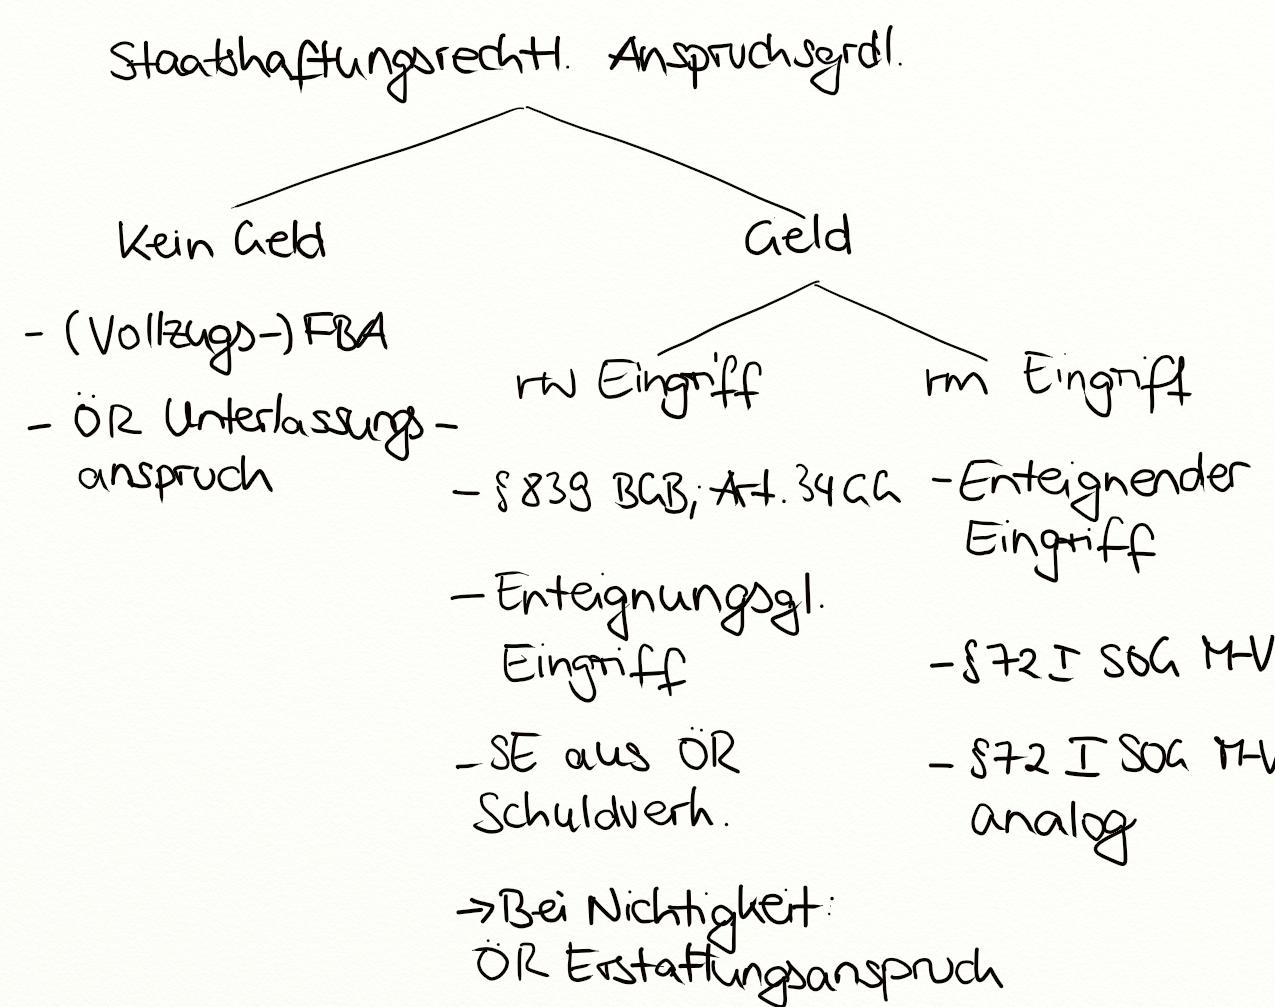 Staatshaftungsrechtl. Anspruchsgrdl.
Kein Geld
- (Vollzugs-) FBA
- ÖR Unterlassungs-
anspruch
Geld
rw Eingriff
- § 839 BGB, Art. 34 GG
- Enteignungsgl.
Eingriff
- SE aus ÖR
Schuldverh.
→ Bei Nichtigkeit:
ÖR Erstattungsanspruch
rm Eingriff
- Enteignender
Eingriff
- § 72 I SOG M-V
- § 72 I SOG M-V
analog